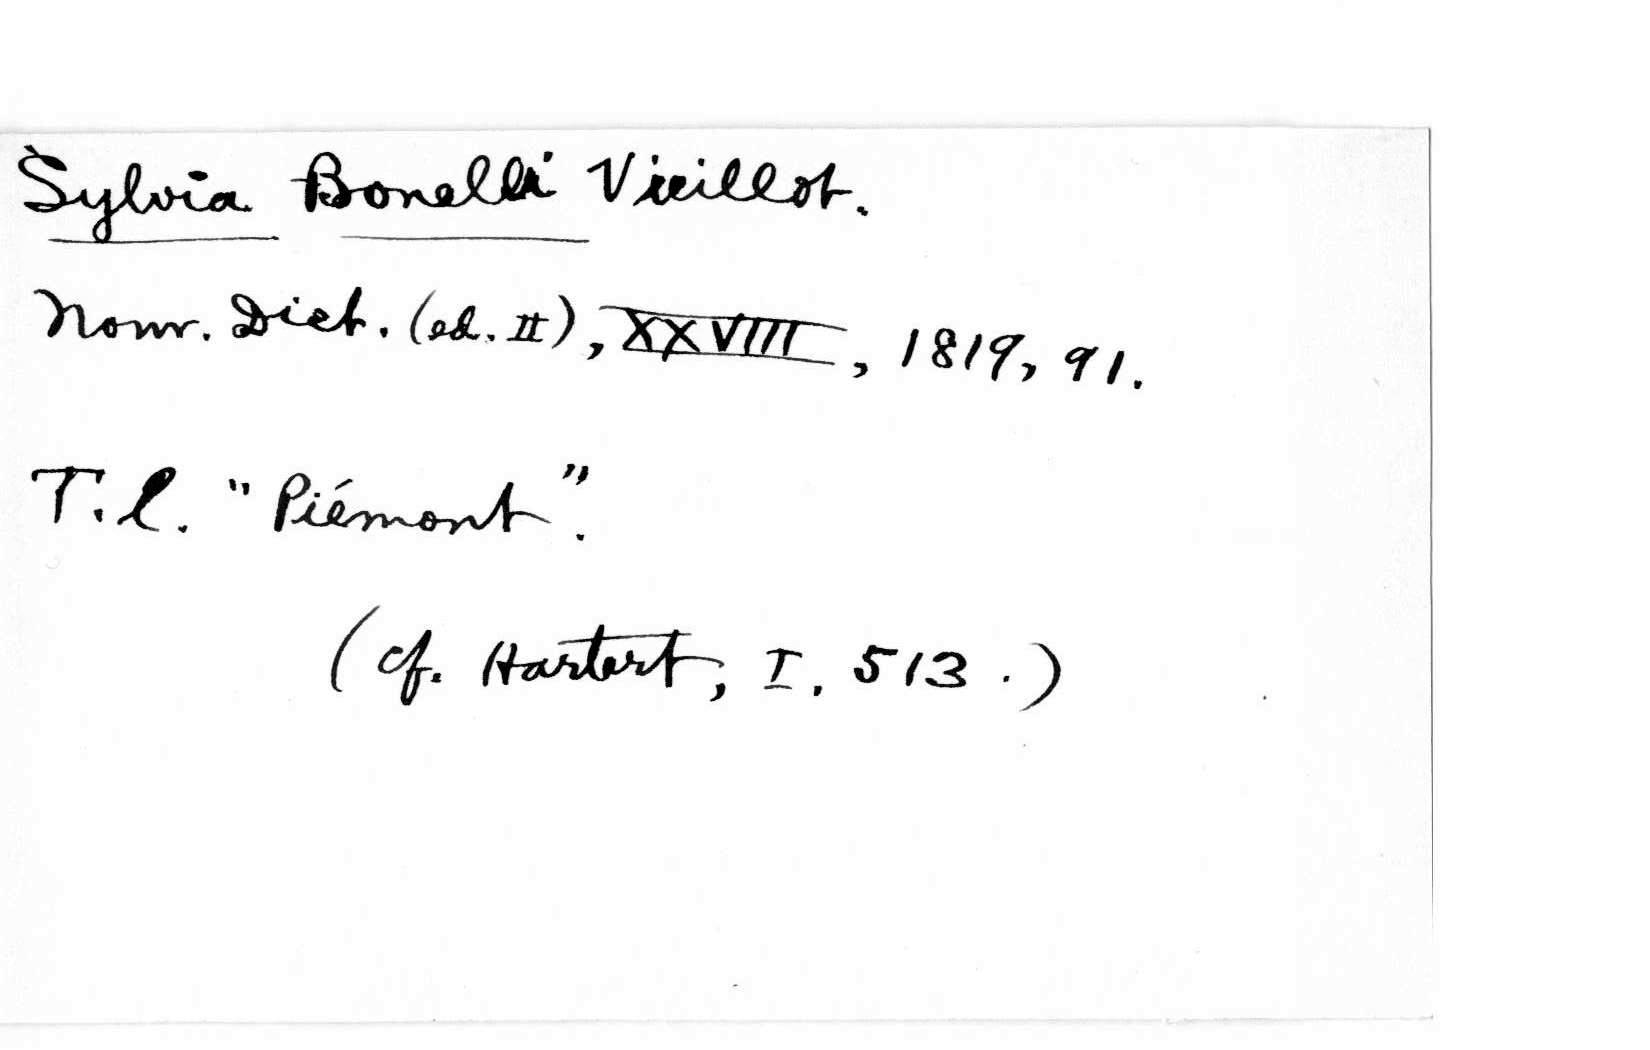 Sylvia Bonelli Vieillot.
Nouv. Dict. (ed. II), XXVIII, 1819, 91.
T. l. "Piémont".
(cf. Hartert, I. 513.)